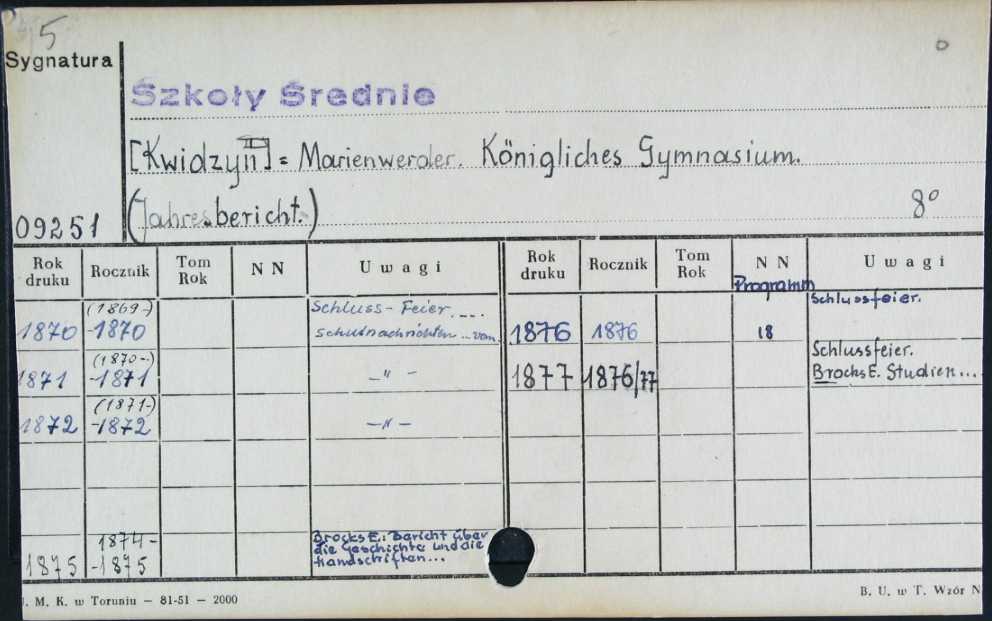 5
Sygnatura
Szkoły Średnie
[Kwidzyń] = Marienwerder. Königliches Gymnasium.
(Jahresbericht.)
8°
09251
Rok druku Rocznik Tom Rok N N Uwagi Rok druku Rocznik Tom Rok N N Uwagi
Programm
(1869-) Schluss-Feier.... Schlussfeier.
1870 -1870 Schulnachrichten...vom 1876 1876 18
(1870-) Schlussfeier.
1871 -1871 -"- 1877 1876/77 Brocks E. Studien...
(1871-)
1872 -1872 -"-
1874- Brocks E.: Bericht über
die Geschichte und die
1875 -1875 Handschriften...
. M. K. w Toruniu — 81-51 — 2000
B. U. w T. Wzór N